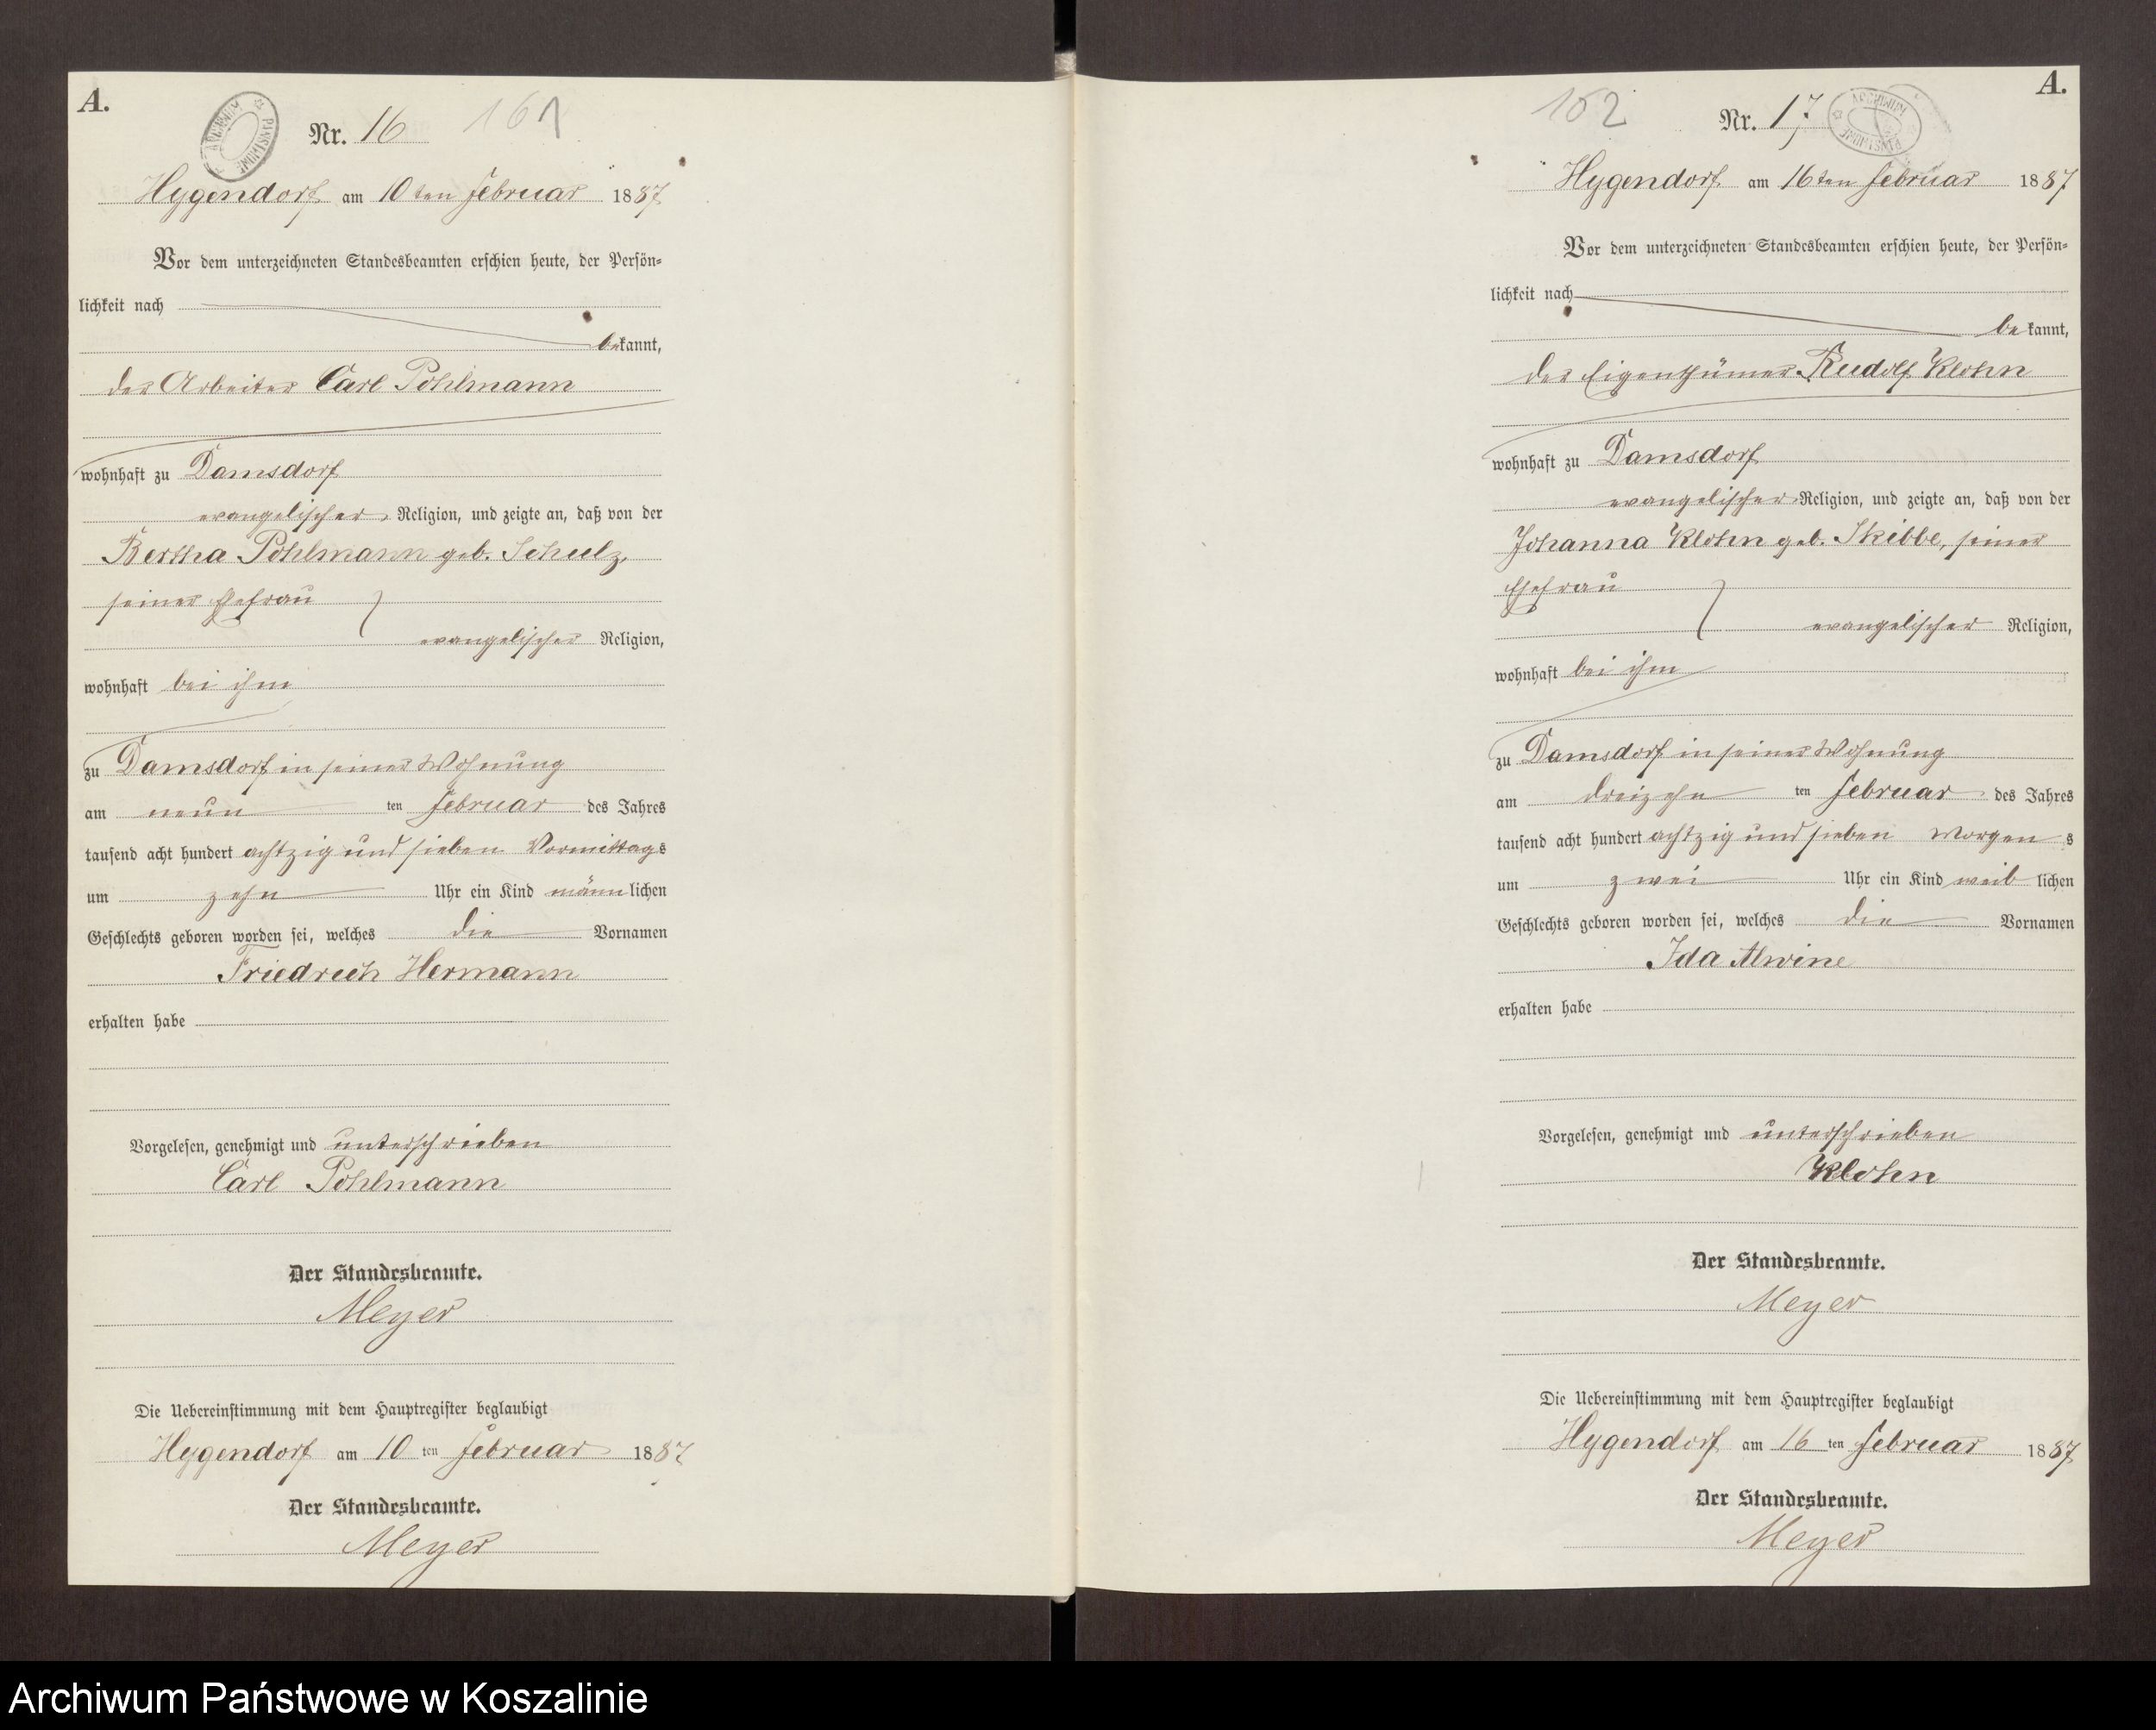 A.
ARCHIWUM PAŃSTWOWE
Nr. 16 161
Hygendorf am 10ten Februar 1887
Vor dem unterzeichneten Standesbeamten erschien heute, der Persön-
lichkeit nach
bekannt,
der Arbeiter Carl Pohlmann
wohnhaft zu Damsdorf
evangelischer Religion, und zeigte an, daß von der
Bertha Pohlmann geb. Schulz,
seiner Ehefrau
evangelischer Religion,
wohnhaft bei ihm
zu Damsdorf in seiner Wohnung
am neun ten Februar des Jahres
tausend acht hundert achtzig und sieben Vormittags
um zehn Uhr ein Kind männlichen
Geschlechts geboren worden sei, welches die Vornamen
Friedrich Hermann
erhalten habe
Vorgelesen, genehmigt und unterschrieben
Carl Pohlmann
Der Standesbeamte.
Meyer
Die Uebereinstimmung mit dem Hauptregister beglaubigt
Hygendorf am 10 ten Februar 1887
Der Standesbeamte.
Meyer
A.
102 Nr. 17
ARCHIWUM PAŃSTWOWE
Hygendorf am 16ten Februar 1887
Vor dem unterzeichneten Standesbeamten erschien heute, der Persön-
lichkeit nach
bekannt,
der Eigenthümer Rudolf Klohn
wohnhaft zu Damsdorf
evangelischer Religion, und zeigte an, daß von der
Johanna Klohn geb. Skibbe, seiner
Ehefrau
evangelischer Religion,
wohnhaft bei ihm
zu Damsdorf in seiner Wohnung
am dreizehn ten Februar des Jahres
tausend acht hundert achtzig und sieben Morgens
um zwei Uhr ein Kind weiblichen
Geschlechts geboren worden sei, welches die Vornamen
Ida Alwine
erhalten habe
Vorgelesen, genehmigt und unterschrieben
Klohn
Der Standesbeamte.
Meyer
Die Uebereinstimmung mit dem Hauptregister beglaubigt
Hygendorf am 16 ten Februar 1887
Der Standesbeamte.
Meyer
Archiwum Państwowe w Koszalinie